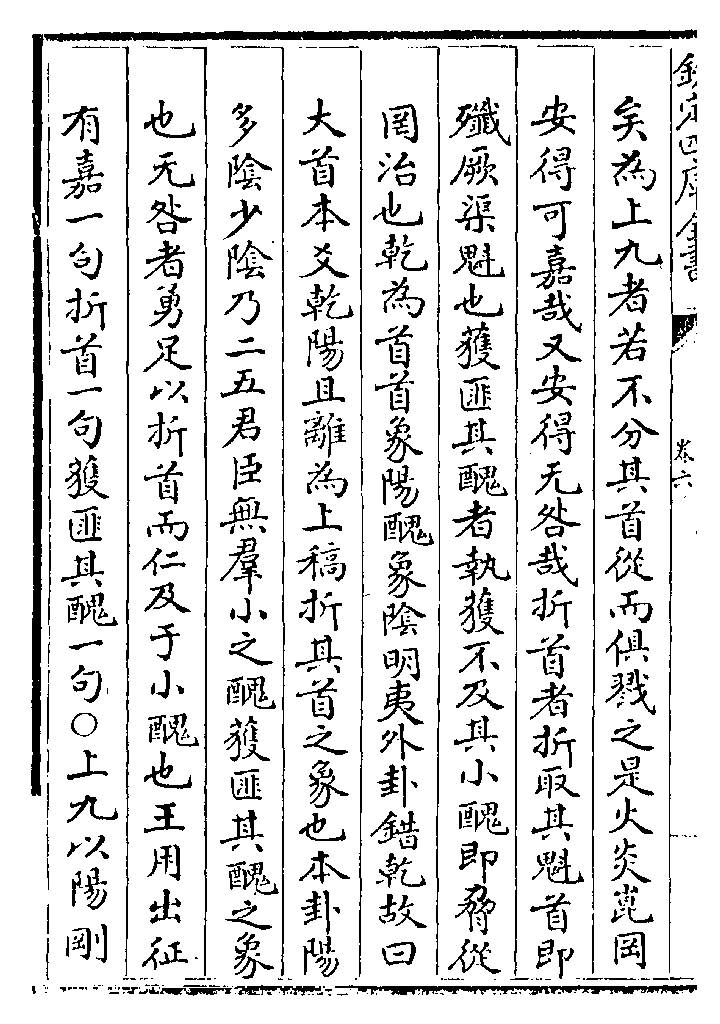 欽定四庫全書
卷六
矣為上九者若不分其首從而俱戮之是火炎崑岡
安得可嘉哉又安得无咎哉折首者折取其魁首即
殲厥渠魁也獲匪其醜者執獲不及其小醜即脅從
罔治也乾為首首象陽醜象陰明夷外卦錯乾故曰
大首本爻乾陽且離為上稿折其首之象也本卦陽
多陰少陰乃二五君臣無羣小之醜獲匪其醜之象
也无咎者勇足以折首而仁及于小醜也王用出征
有嘉一句折首一句獲匪其醜一句○上九以陽剛